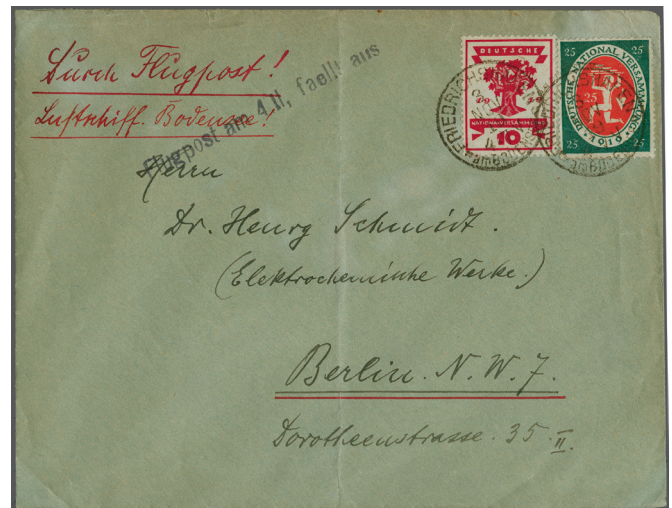 Durch Flugpost!
Luftschiff. Bodensee!
Flugpost am 4.11, faellt aus
DEUTSCHE
NATIONALVERSAMMLUNG
10
25 25
DEUTSCHE NATIONAL VERSAMMLUNG 1919
25
25 25
FRIEDRICHSHAFEN
Herrn
Dr. Henry Schmidt.
(Elektrochemische Werke.)
Berlin. N. W. 7.
Dorotheenstrasse. 35. II.